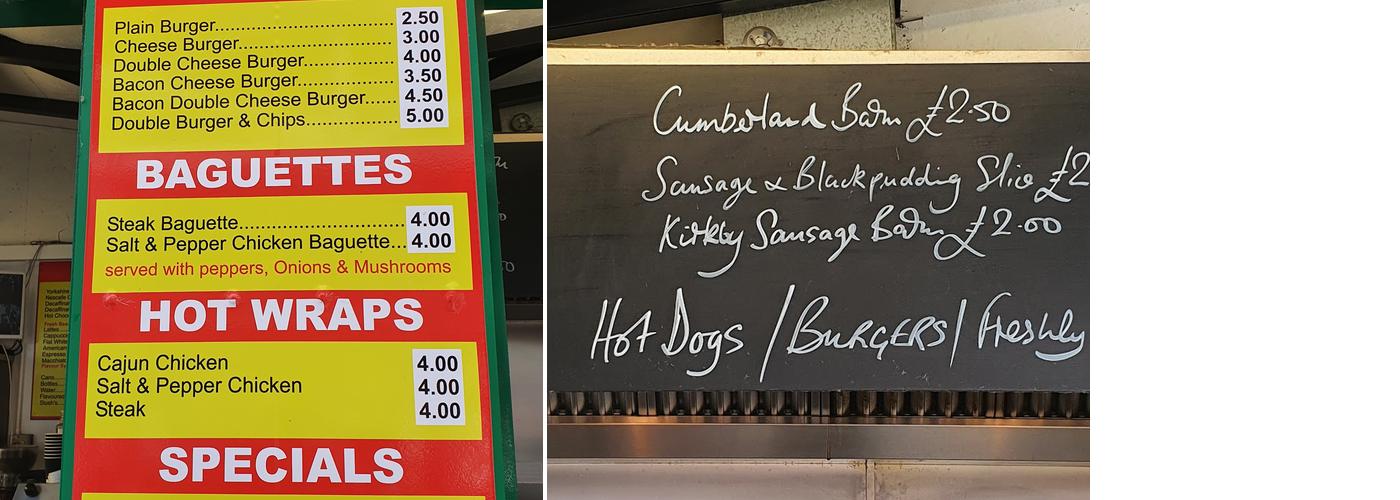 Plain Burger........................................ 2.50
Cheese Burger.................................. 3.00
Double Cheese Burger.................... 4.00
Bacon Cheese Burger..................... 3.50
Bacon Double Cheese Burger...... 4.50
Double Burger & Chips.................... 5.00
BAGUETTES
Steak Baguette.................................... 4.00
Salt & Pepper Chicken Baguette... 4.00
served with peppers, Onions & Mushrooms
HOT WRAPS
Cajun Chicken 4.00
Salt & Pepper Chicken 4.00
Steak 4.00
SPECIALS
Cumberland Barm £2.50
Sausage & Blackpudding Slice £2
Kirkby Sausage Barm £2.00
Hot Dogs / BURGERS / Freshly